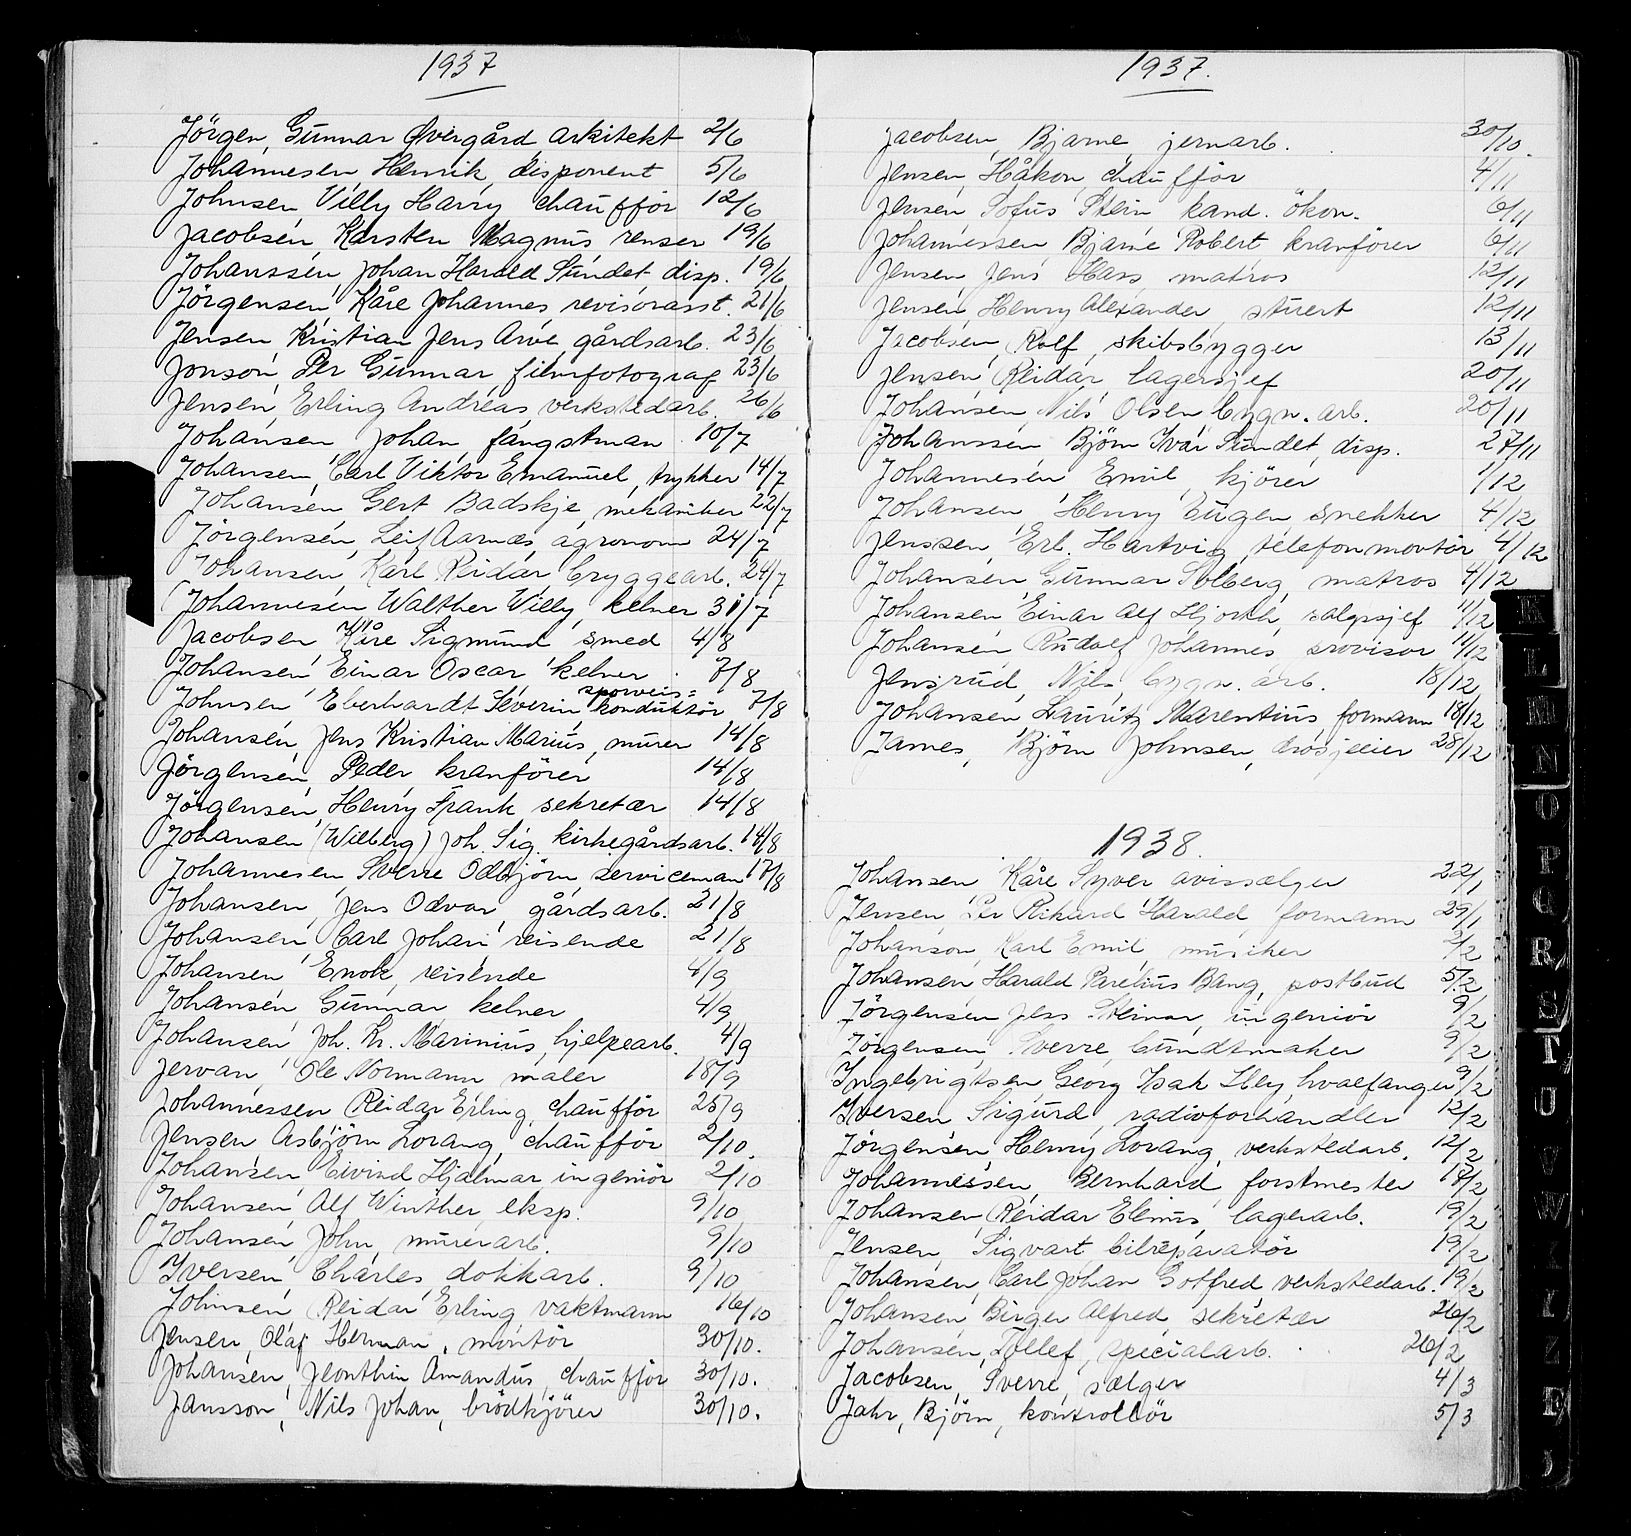 1937
Jörgen, Gunnar Övergård arkitekt 2/6
Johannesen Henrik, disponent 5/6
Johnsen, Villy Harry chaufför 12/6
Jacobsen, Karsten Magnus renser 19/6
Johanssén, Johan Harald Sundet, disp. 19/6
Jörgensen, Kåre Johannes, revisorasst. 21/6
Jensen Kristian Jens Arve, gårdsarb. 23/6
Jonson, Per Gunnar, filmfotograf 23/6
Jensen, Erling Andreas verkstedarb. 26/6
Johansen Johan, fangstman 10/7
Johansen, Carl Viktor Emanuel, trykker 14/7
Johansen Gert Badskje, mekaniker 22/7
Jörgensen, Leif Aarnæs, agronom 24/7
Johansen, Karl Reidar, bryggearb. 24/7
Johannesen Walther Willy, kelner 31/7
Jacobsen, Kåre Sigmund smed 4/8
Johansen Einar Oscar kelner 7/8
Johnsen Eberhardt Severin sporveis=konduktör 7/8
Johansen, Jens Kristian Marius, murer 14/8
Jörgensen, Peder, kranförer 14/8
Jörgensen, Henry Frank sekretær 14/8
Johansen (Wilberg) Joh. Sig. kirkegårdsarb. 14/8
Johannesen Sverre Oddbjörn, serviceman 17/8
Johansen, Jens Odvar, gårdsarb. 21/8
Johansen, Carl Johan reisende 21/8
Johansen Enok, reisende 4/9
Johansen, Gunnar kelner 4/9
Johansen, Joh. Kr. Marinius, hjelpearb. 4/9
Jervan, Ole Normann maler 18/9
Johannessen Reidar Erling, chaufför 25/9
Jensen Asbjörn Lorang, chaufför 2/10.
Johansen Eivind Hjalmar ingeniör 2/10
Johansen, Alf Winther, eksp. 9/10
Johansen, John, murerarb. 9/10
Iversen, Charles, dokkarb. 9/10
Johnsen Reidar Erling, vaktmann 16/10
Jensen, Olaf Herman, montör 30/10.
Johansen, Amandus, chaufför 30/10.
Jansson, Nils Johan, brödkjörer 30/10.
1937.
Jacobsen, Bjarne, jernarb. 30/10.
Jensen, Håkon, chaufför 4/11
Jensen, Sofus Stein kand. ökon. 6/11
Johannessen Bjarne Robert kranförer 6/11
Jensen, Jens Hass matros 12/11
Jensen, Henry Alexander, stuert 12/11
Jacobsen, Rolf, skibsbygger 13/11
Jensen Reidar, lagersjef 20/11
Johansen, Nils Olsen bygn. arb. 20/11
Johanssen Björn Ivar Sundet, disp. 27/11
Johannesen, Emil, kjörer 1/12
Johansen Henry Eugen, snekker 4/12
Jenssen, Erl. Hartvig, telefonmontör 4/12
Johansen Gunnar Solberg, matros 4/12
Johansen, Einar Alf Hjorth, salgssjef 11/12
Johansen Rudolf Johannes, provisor 11/12
Jensrud, Nils, bygn. arb. 18/12
Johansen Lauritz Marentius formann 18/12
James, Björn Johnsen, drosjeeier 28/12
1938.
Johansen Kåre Syver avissælger 22/1
Jensen Per Rikard Harald, formann 29/1
Johanson, Karl Emil, musiker 2/2
Johansen Harald Parelius Bang, postbud 5/2
Jörgensen, Jens Steinar, ingeniör 9/2
Jörgensen, Sverre, bundtmaker 9/2
Ingebrigtsen Georg Isak Eley, hvalfanger 9/2
Iversen Sigurd, radioforhandler 12/2
Jörgensen, Henry Lorang, verkstedarb. 12/2
Johannessen, Bernhard, forstmester 17/2
Johansen, Reidar Elenus, lagerarb. 19/2
Jensen, Sigvart bilreparatör 19/2
Johansen, Carl Johan Gotfred verkstedarb. 19/2
Johansen Birger Alfred, sekretær 26/2
Johansen, Tollef, specialarb. 26/2
Jacobsen, Sverre, sælger 4/3
Jahr, Björn, kontrollör 5/3
K
L
M
N
O
P
Q
R
S
T
U
V
W
X
Y
Z
Æ